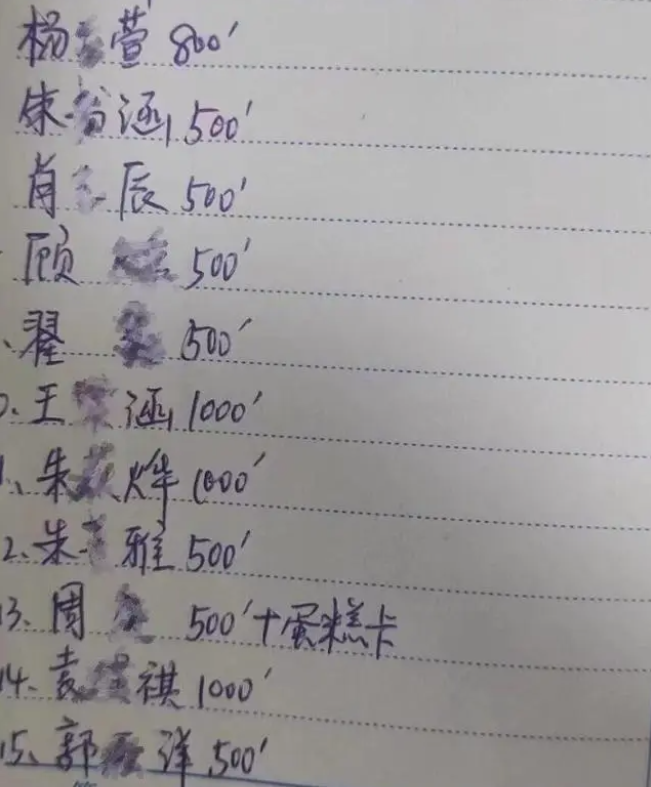 杨 萱 800'
朱 涵 500'
肖 辰 500'
顾 500'
翟 500'
0、王 涵 1000'
1、朱 烨 1000'
2、朱 雅 500'
13、周 500'+蛋糕卡
14、袁 祺 1000'
15、郭 洋 500'